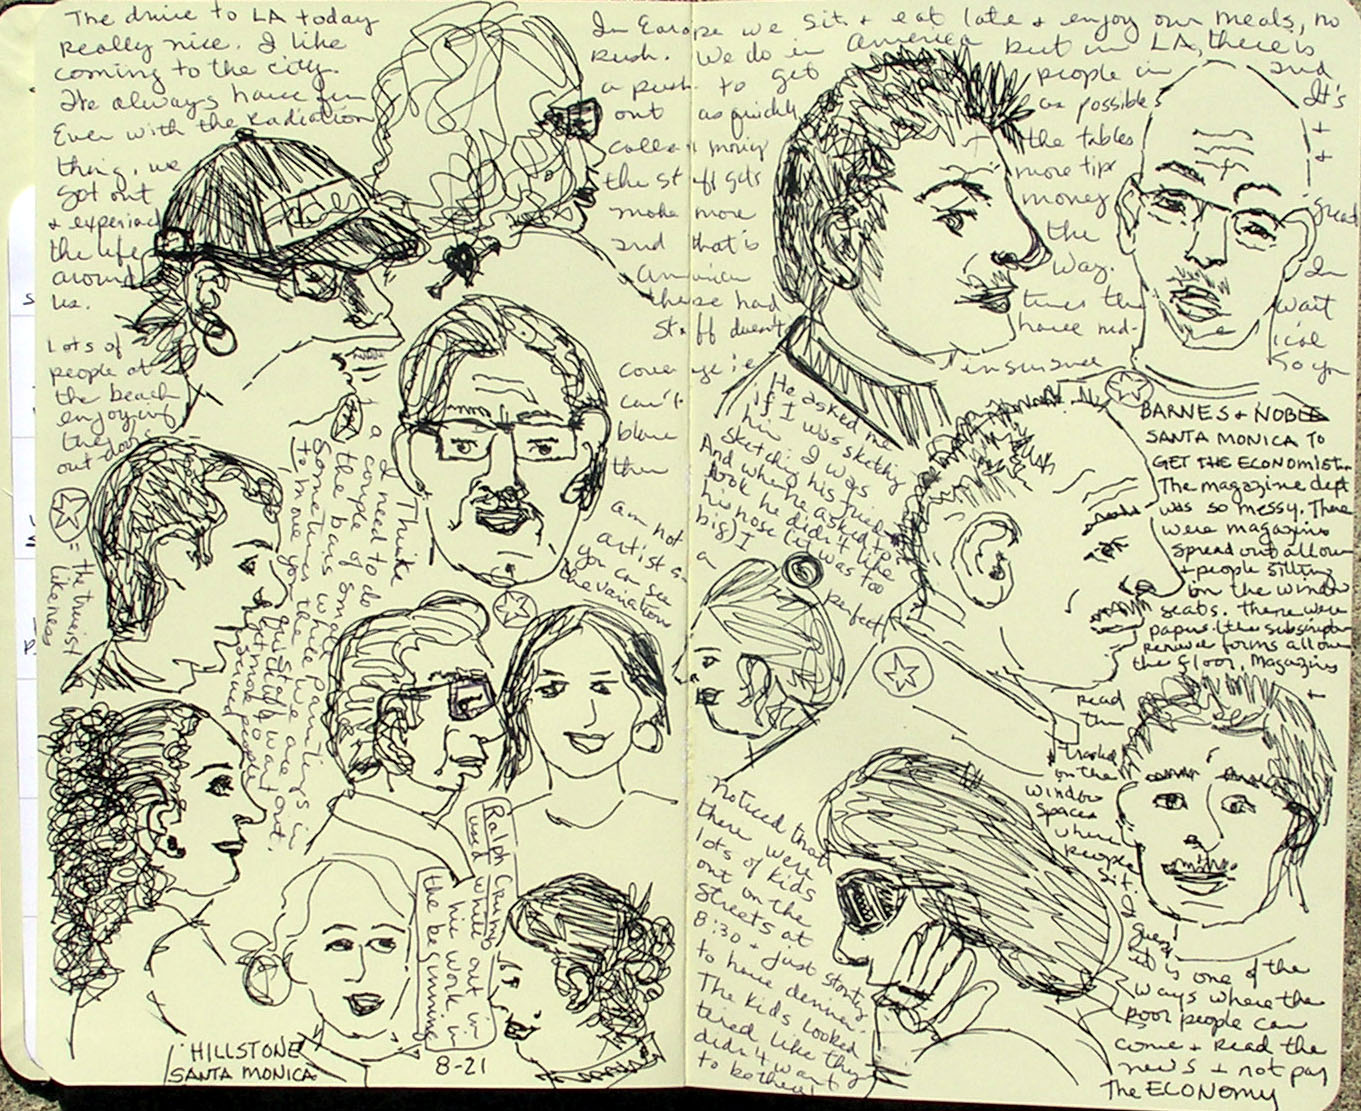 The drive to LA today
really nice. I like
coming to the city.
We always have fun
Even with the radiation
thing, we
got out
+ experience
the life
around
us.
Lots of
people at
the beach
enjoying
the
out doors
= the truest
likeness
I Think
I need to do
a couple of small
the bars white paintings
Sometimes we are in
to move you
the staff want
out.
serve people
In Europe we sit + eat late + enjoy our meals, no
rush. We do in America but in LA, there is
a push to get people in and
out as quickly as possible. It's
collect money the tables +
the staff gets more tips +
make more money great
and that is the
American way. In
these hard times the wait
staff doesn't have med- ical
coverage ie insurance So you
can't
blame
them
am not
artist as
you can see
the variations
He asked me
if I was sketching
him. I was
sketching his friend.
And when he asked to
look he didn't like
his nose (it was too
big) I
a
perfect
BARNES + NOBLE
SANTA MONICA TO
GET THE ECONOMIST.
The magazine dept
was so messy. There
were magazines
spread out all over
+ people sitting
in the window
seats. There were
papers (the subscription
renewal forms all over
the floor, Magazines
+
read
them
trashed
on the
window
spaces
where
people
sit. I
guess
it is one of the
ways where the
poor people can
come + read the
news + not pay
The ECONOMY
noticed that
there were
lots of kids
out on the
streets at
8:30 + just starting
to have dinner.
The kids looked
tired like they
didn't want
to be there!
Ralph
used white out in
his work in
the beginning
HILLSTONE
SANTA MONICA
8-21